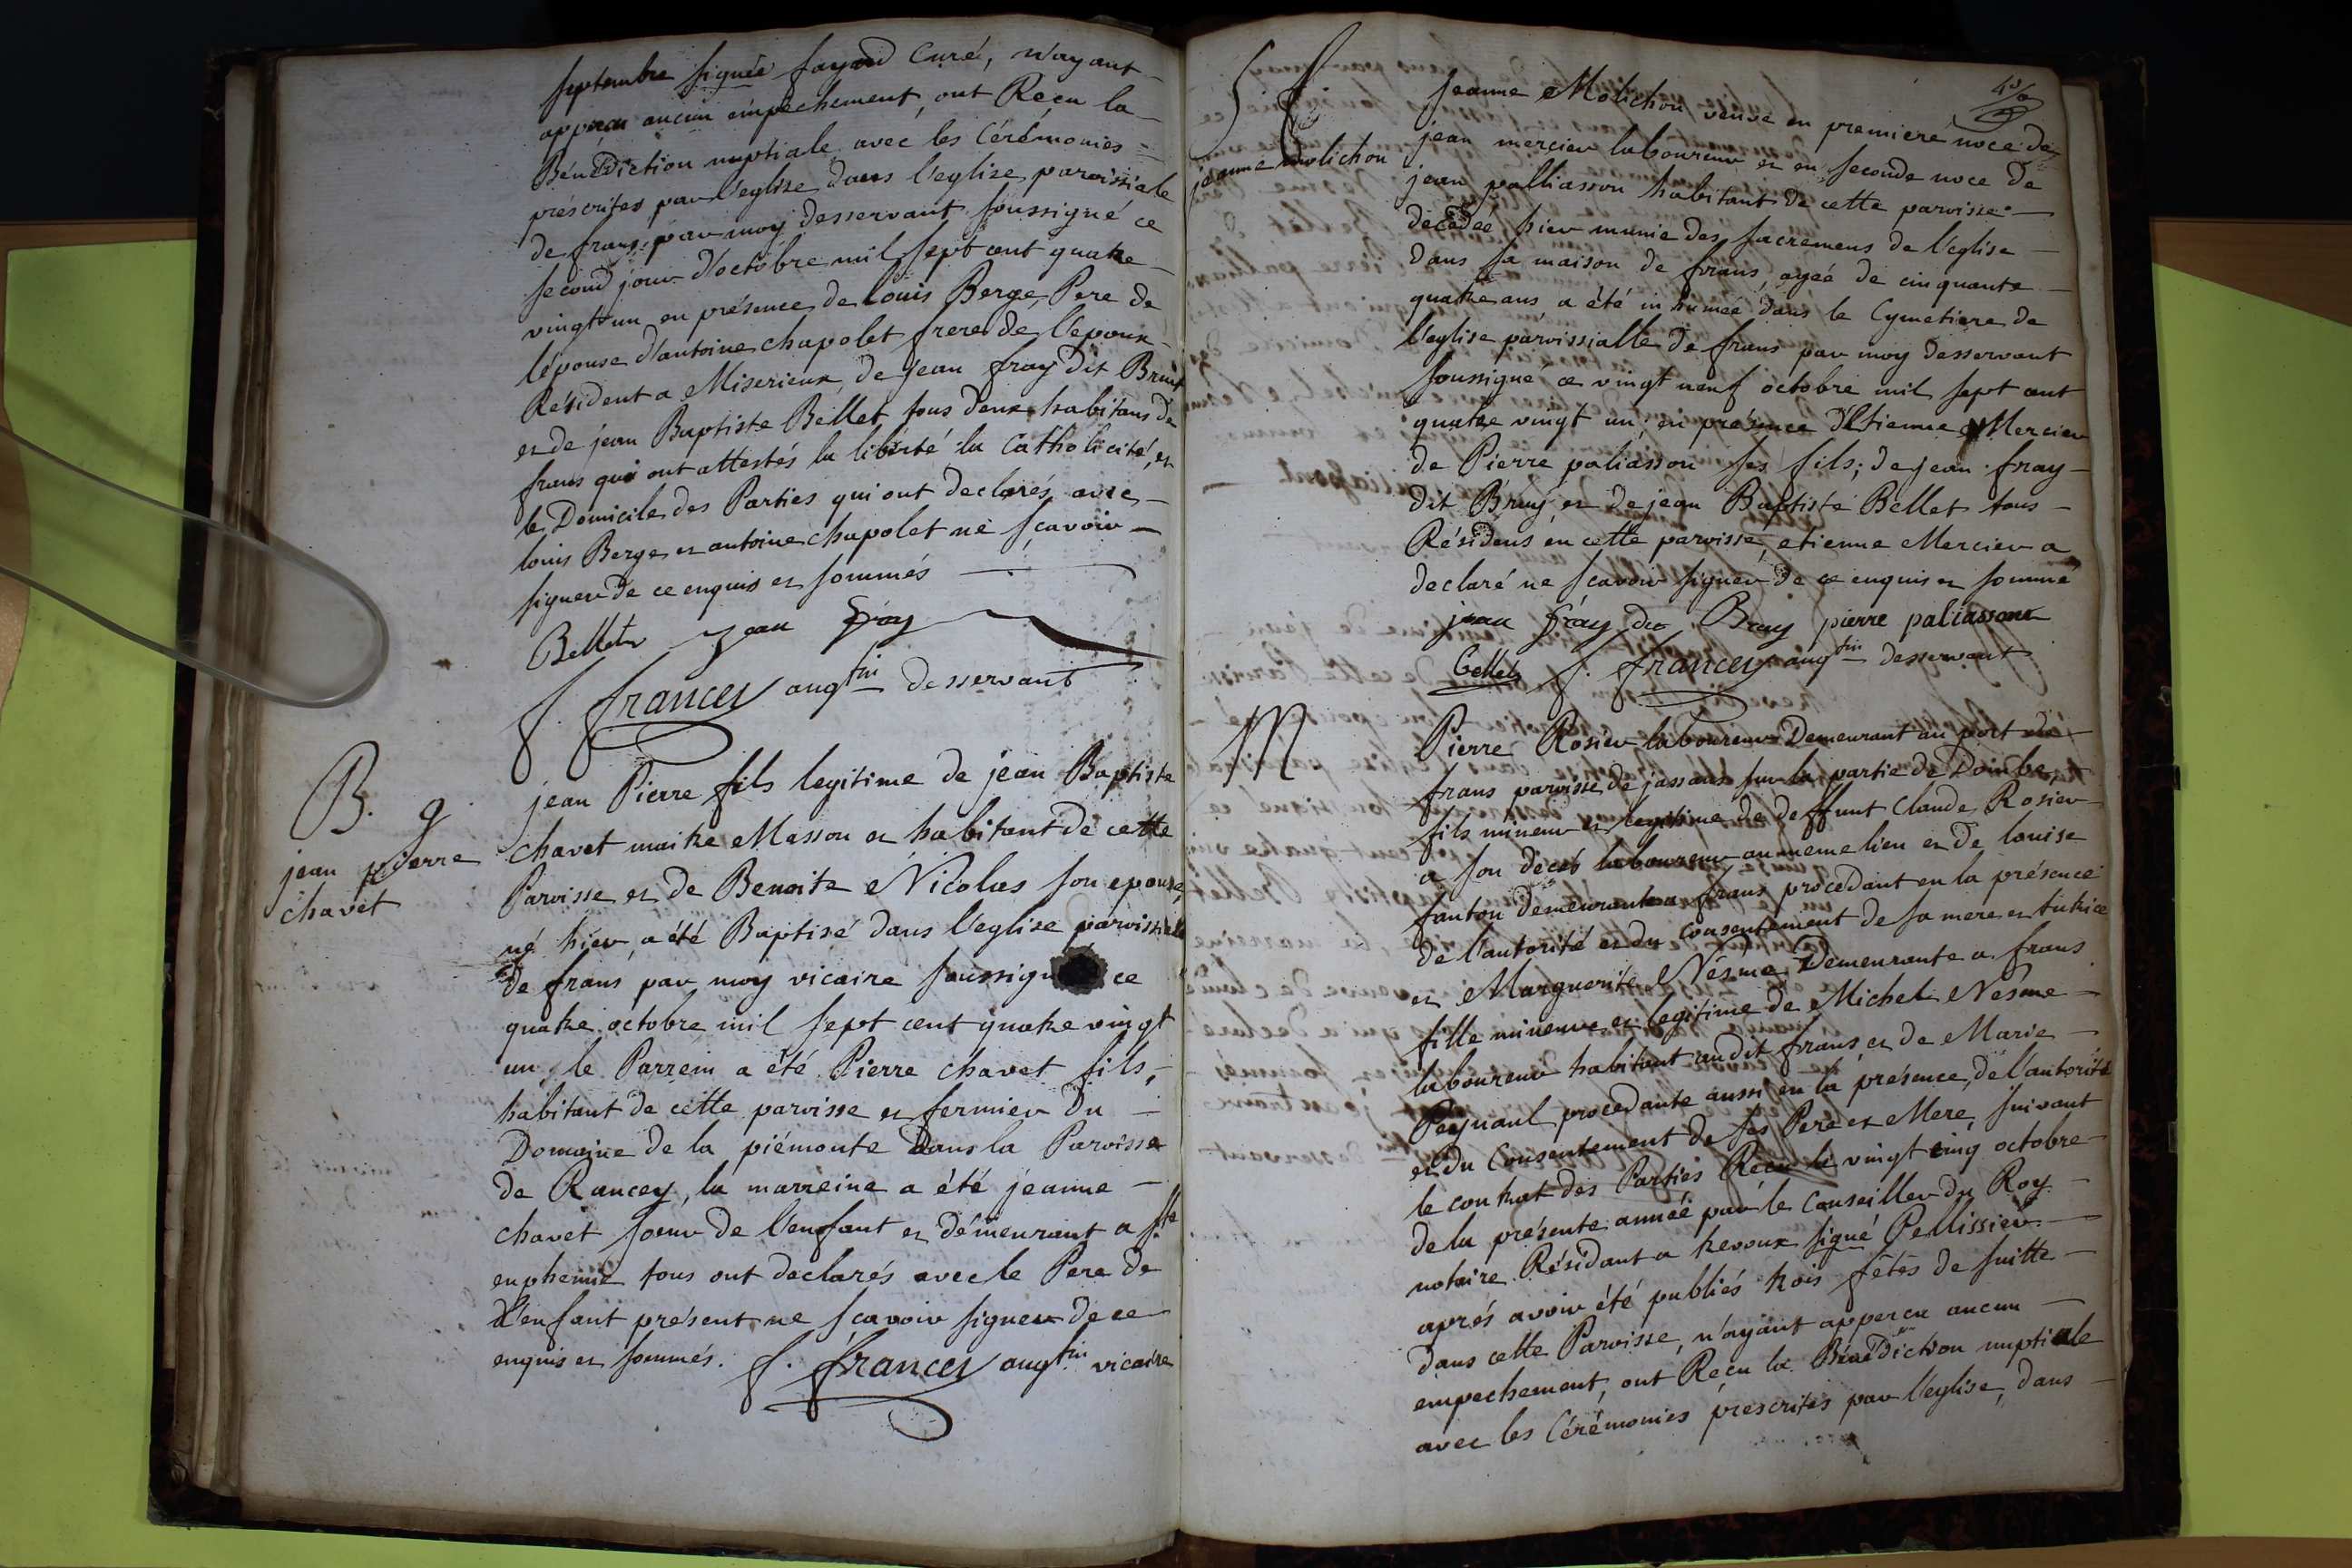 septembre signée fayard Curé, n'ayant
apperçu aucun empêchement, ont Reçu la
Bénédiction nuptiale avec les Cérémonies
préscrites par l'eglise dans l'eglise paroissiale
de frans par moy desservant soussigné ce
second jour d'octobre mil sept cent quatre
vingt un en présence de Louis Berge Pere de
lépouse d'antoine chapolet frere de l'epoux
Résident a Miserieux, de jean fray dit Bruy
et de jean Baptiste Bellet tous deux habitans de
frans qui ont attestés la liberté la Catholicité, et
le Domicile des Parties qui ont declarés avec
louis Berge et antoine chapolet ne sçavoir
signer de ce enquis et sommés
Bellet jean fray
f. francey augtin desservant
B. g
jean pierre
chavet
jean Pierre fils legitime de jean Baptiste
chavet maitre Masson et habitant de cette
Paroisse et de Benoite Nicolas son epouse,
né hier, a été Baptisé dans l'eglise paroissialle
de frans par moy vicaire soussigné ce
quatre octobre mil sept cent quatre vingt
un le Parrein a été Pierre chavet fils,
habitant de cette paroisse et fermier du
Domaine de la piémonte dans la Paroisse
de Rancey, la marreine a été jeanne
chavet soeur de l'enfant et démeurant a ste
euphemie tous ont declarés avec le Pere de
l'enfant présent ne sçavoir signer de ce
enquis et sommés. f. francey augtin vicaire
S f
jeanne molichon
Jeanne Molichon veuve en premiere noce de
jean mercier laboureur et en seconde noce de
jean palliasson habitant de cette paroisse
décédée hier munie des sacremens de l'eglise
dans sa maison de frans, agée de cinquante
quatre ans, a été inhumée dans le Cymetiere de
l'eglise paroissialle de frans par moy desservant
soussigné ce vingt neuf octobre mil sept cent
quatre vingt un, en présence d'Etienne Mercier
de Pierre paliasson ses fils; de jean fray
dit Bruy, et de jean Baptiste Bellet tous
Résidens en cette paroisse, etienne Mercier a
declaré ne sçavoir signer de ce enquis et sommé
jean fray dit Bruy pierre paliasson
Bellet f. francey augtin desservant
M
Pierre Rosier laboureur Demeurant au port de
frans paroisse de jassans sur la partie de Dombe,
fils mineur et legitime de deffunt Claude Rosier
a son decès laboureur au meme lieu et de louise
fanton demeurante a frans procedant en la présence
de l'autorité et du consentement de sa mere et tutrice
et Marguerite Nésme Demeurante a frans
fille mineure et legitime de Michel Nesme
laboureur habitant audit frans et de Marie
Peynaul procedante aussi en la présence, de l'autorité
et du Consentement de ses Pere et Mere, suivant
le contrat des Parties Reçu le vingt cinq octobre
de la présente année par le Conseiller du Roy
notaire Résidant a trevoux signé Pellissier
aprés avoir été publiés trois fêtes de suitte
dans cette Paroisse, n'ayant apperçu aucun
empechement, ont Reçu la Bénédiction nuptiale
avec les Cérémonies prescrites par l'eglise, dans